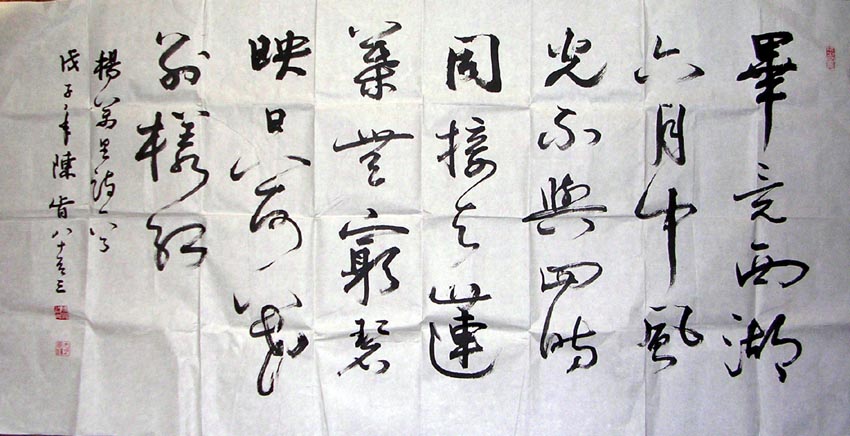 畢竟西湖
六月中風
光不與四時
同接天蓮
葉無窮碧
映日荷花
別樣紅
楊萬里詩一首
戊子年陳八十三